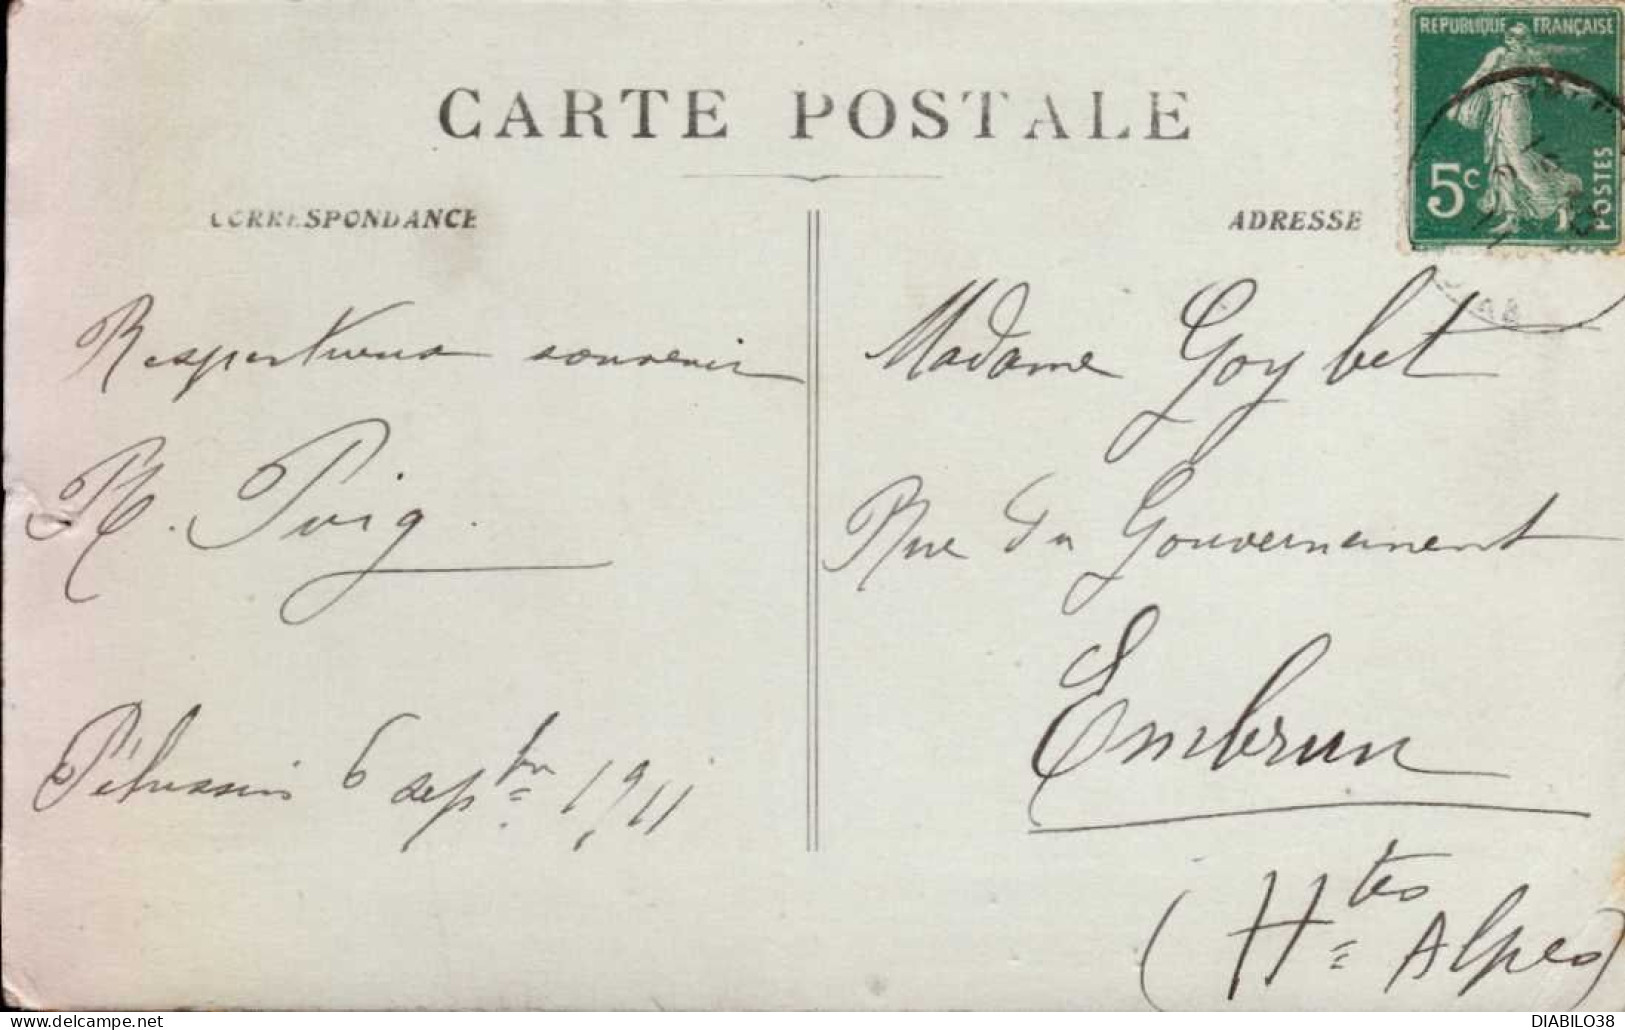 CARTE POSTALE
CORRESPONDANCE
ADRESSE
REPUBLIQUE FRANÇAISE
5c
POSTES
Respectueux souvenir
Puig.
Pélussin 6 septbre 1911
Madame Goybet
Rue du Gouvernement
Embrun
(Htes Alpes)
DIABILO38